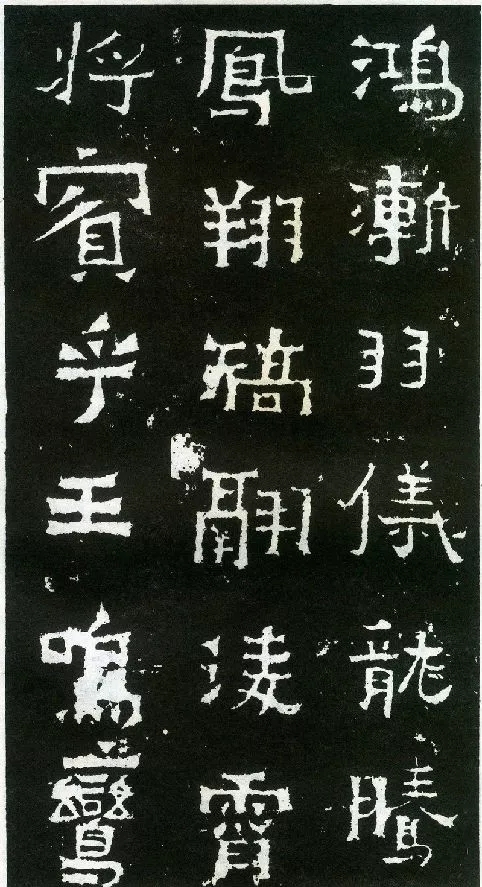 鴻漸羽儀龍騰
鳳翔矯翮凌霄
將賓乎王鳴鸞